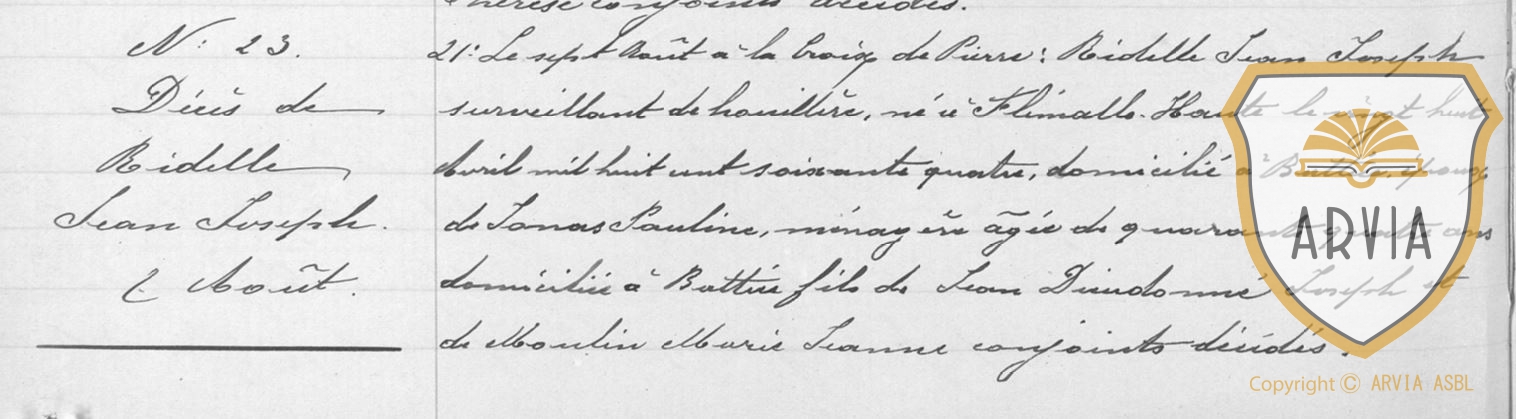 Thérèse conjoints décédés.
N: 23.
Décès de
Ridelle
Jean Joseph.
Août.
21: Le sept Août à la Croix de Pierre: Ridelle Jean Joseph
surveillant de houillère, né à Flémalle-Haute le vingt huit
Avril mil huit cent soixante quatre, domicilié à Battice, époux
de Jonas Pauline, ménagère âgée de quarante quatre ans
domiciliée à Battice fils de Jean Dieudonné Joseph et
de Moulin Marie Jeanne conjoints décédés.
ARVIA
Copyright © ARVIA ASBL